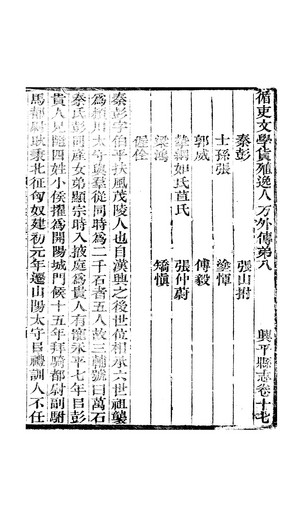 循吏文學貨殖逸人方外傳弟八　興平縣志卷十七
秦彭　張山拊
士孫張　塗惲
郭威　傅毅
姒氏苣氏　張仲蔚
梁鴻　矯慎
偓佺
秦彭字伯平扶風茂陵人也自漢興之後世位相承六世祖襲
為潁川太守與羣從同時為二千石者五人故三輔號曰萬石
秦氏彭同產女弟顯宗時入掖庭為貴人有寵永平七年㠯彭
貴人兄隨四姓小侯擢為開陽城門候十五年拜騎都尉副駙
馬都尉耿秉北征匈奴建初元年遷山陽太守㠯禮訓人不任